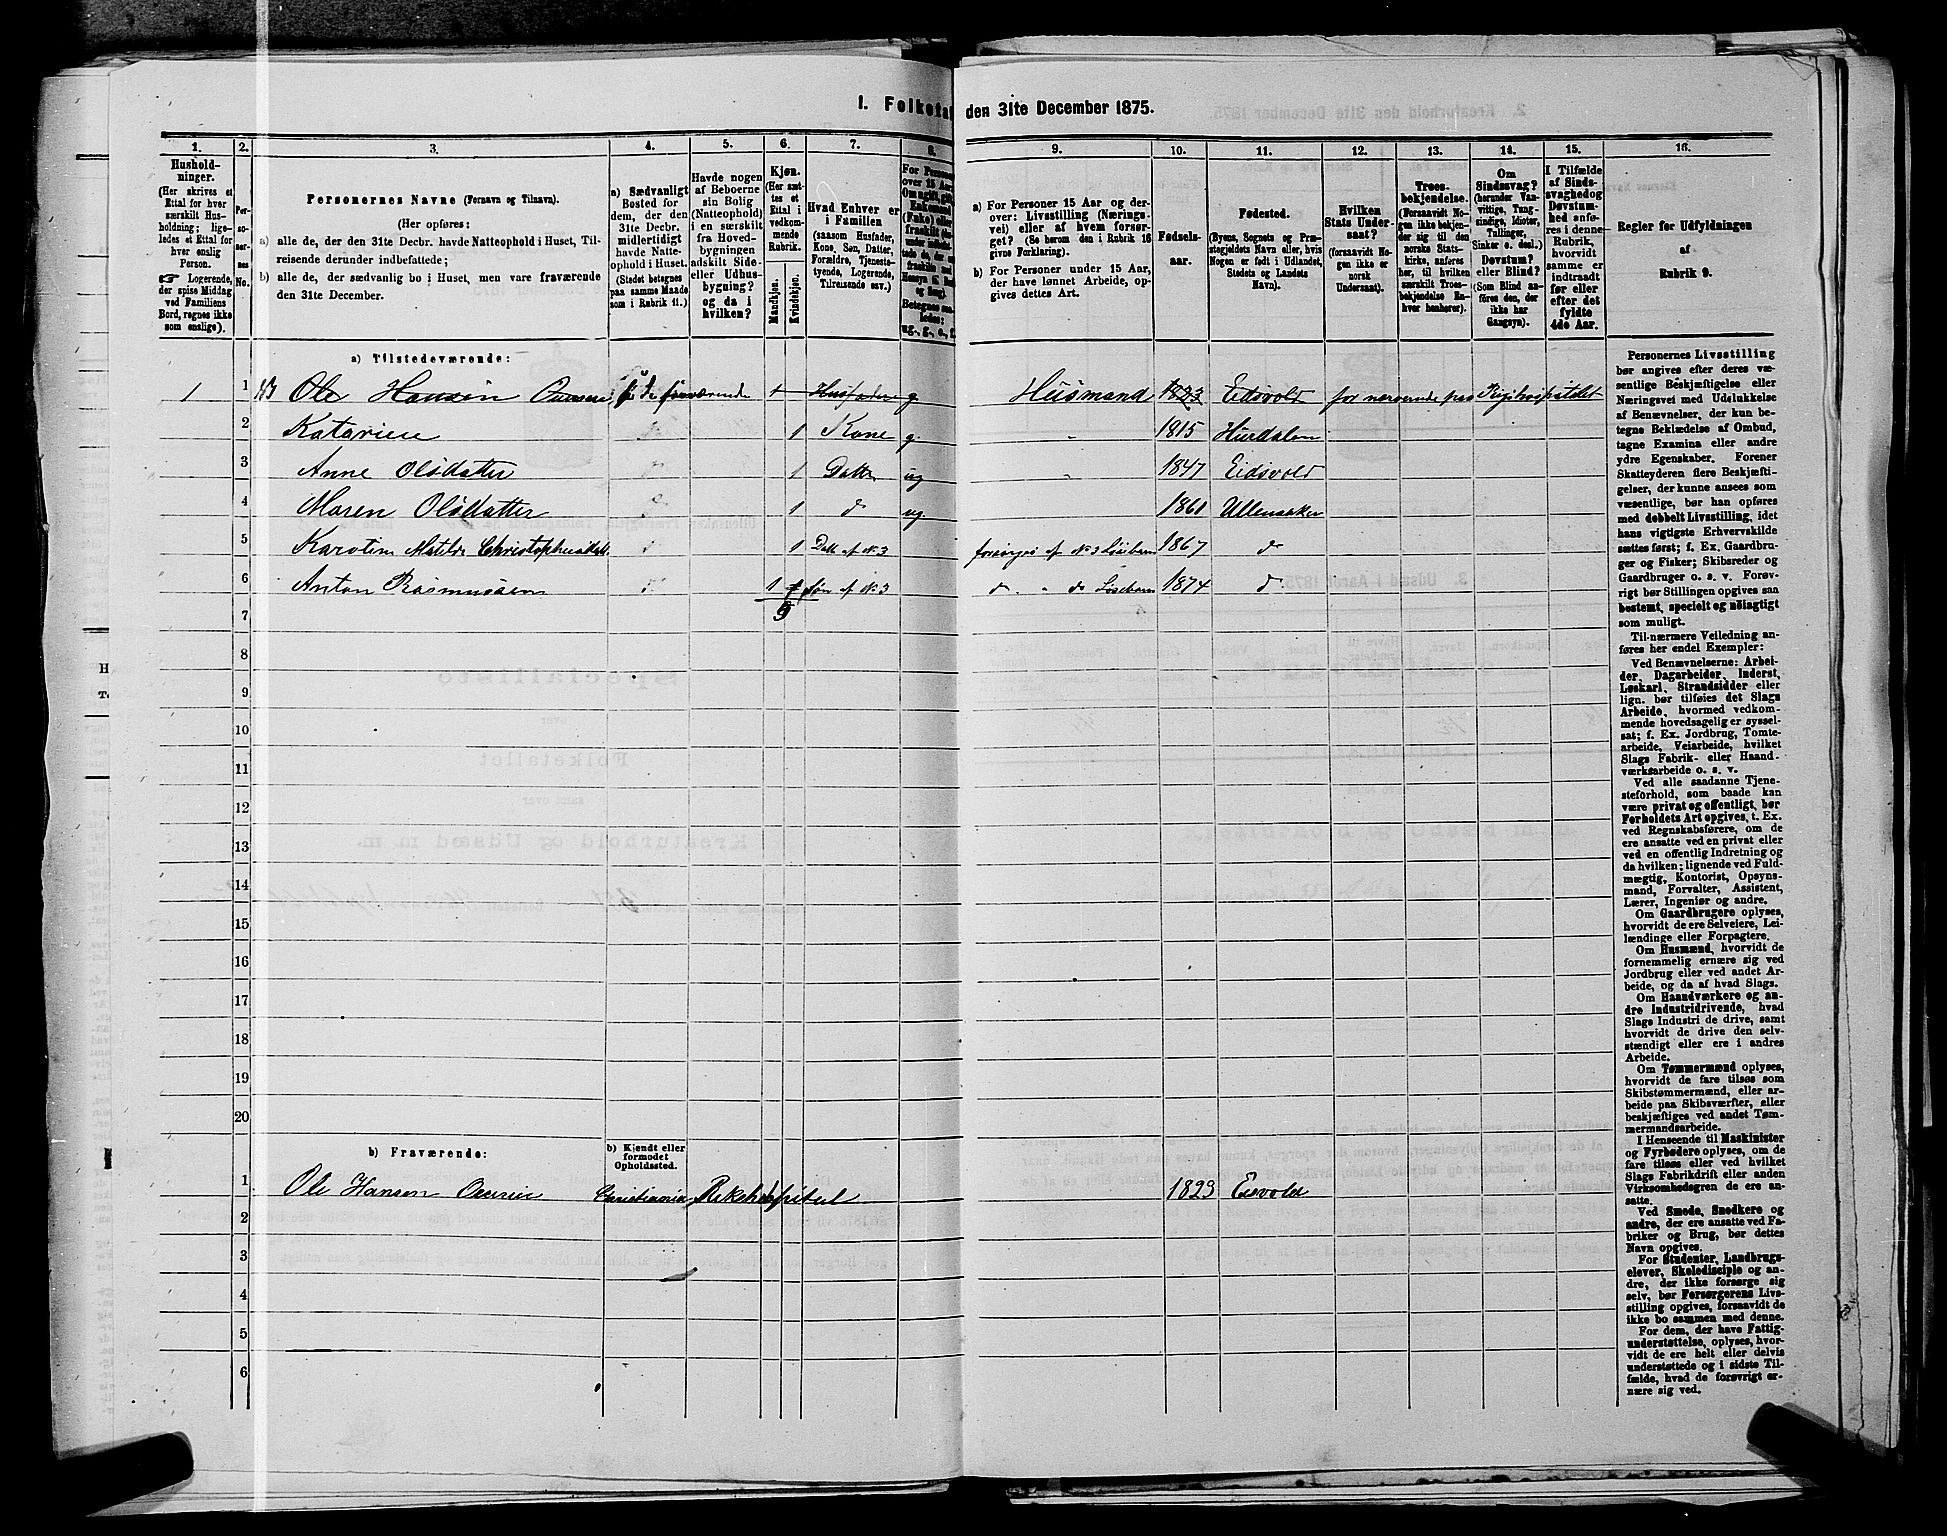 I. Folketal den 31te December 1875.
1. 2. 3. 4. 5. 6. 7. 8. 9. 10. 11. 12. 13. 14. 15. 16.
Hushold-
ninger.
(Her skrives et
Ettal for hver
særskilt Hus-
holdning; lige-
ledes et Ettal for
hver enslig
Person.
☞ Logerende,
der spise Middag
ved Familiens
Bord, regnes ikke
som enslige).
Per-
so-
ner-
nes
No.
Personernes Navne (Fornavn og Tilnavn).
(Her opføres:
a) alle de, der den 31te Decbr. havde Natteophold i Huset, Til-
reisende derunder indbefattede;
b) alle de, der sædvanlig bo i Huset, men vare fraværende
den 31te December.
a) Sædvanligt
Bosted for
dem, der den
31te Decbr.
midlertidigt
havde Natte-
ophold i Huset.
(Stedet betegnes
paa samme Maade
som i Rubrik 11.)
Havde nogen
af Beboerne
sin Bolig
(Natteophold)
i en særskilt
fra Hoved-
bygningen
adskilt Side-
eller Udhus-
bygning?
og da i
hvilken?
Kjøn.
(Her sæt-
tes et
Ettal i
vedkom-
mende
Rubrik.
Mandkjøn.
Kvindekjøn.
Hvad Enhver er
i Familien
(saasom Husfader,
Kone, Søn, Datter,
Forældre, Tjeneste-
tyende, Logerende,
Tilreisende osv.)
a) For Personer 15 Aar og der-
over: Livsstilling (Nærings-
vei) eller af hvem forsør-
get? (Se herom den i Rubrik 16
givne Forklaring).
b) For Personer under 15 Aar,
der have lønnet Arbeide, op-
gives dettes Art.
Fødsels-
aar.
Fødested.
(Byens, Sognets og Præ-
stegjeldets Navn eller, hvis
Nogen er født i Udlandet,
Stedets og Landets
Navn).
Hvilken
Stats Under-
saat?
(forsaavidt No-
gen ikke er
norsk
Undersaat).
Troes-
bekjendelse.
(Forsaavidt No-
gen ikke bekjen-
der sig til den
norske Stats-
kirke, anføres
her, til hvilken
særskilt Troes-
bekjendelse En-
hver henhører).
Om
Sindssvag?
(herunder Van-
vittige, Tung-
sindige, Idioter,
Tullinger,
Sinker o. desl.)
Døvstum?
eller Blind?
(Som Blind an-
føres den, der
ikke har
Gangsyn).
I Tilfælde
af Sinds-
svaghed og
Døvstum-
hed anfø-
res i denne
Rubrik,
hvorvidt
samme er
indtraadt
før eller
efter det
fyldte
4de Aar.
Regler for Udfyldningen
af
Rubrik 9.
a) Tilstedeværende:
1 1 Ole Hansen 1 Husfader g Husmand 1823 Eidsvold
2 Katarine 1 Kone g. " 1815 Hurdalen
3 Anne Olsdatter 1 Datter ug " 1847 Eidsvold
4 Maren Olsdatter 1 d ug. 1861 Ullensaker
5 Karoline Matilde 1 Datt af No 3 forsørges af No 3 1867 d
6 Anton Rasmussen 1 Søn af No 3 d " d 1874 d
7
8
9
10
11
12
13
14
15
16
17
18
19
20
b) Fraværende:
b) Kjendt eller
formodet
Opholdssted.
1 Ole Hansen Christiania 1823 Eisvold
2
3
4
5
6
Personernes Livsstilling
bør angives efter deres væ-
sentlige Beskjæftigelse eller
Næringsvei med Udelukkelse
af Benævnelser, der kun be-
tegne Beklædelse af Ombud,
tagne Examina eller andre
ydre Egenskaber. Forener
Skatteyderen flere Beskjæfti-
gelser, der kunne ansees som
væsentlige, bør han opføres
med dobbelt Livsstilling, idet
hans vigtigste Erhvervskilde
sættes først; f. Ex. Gaardbru-
ger og Fisker; Skibsreder og
Gaardbruger o. s. v. Forøv-
rigt bør Stillingen opgives saa
bestemt, specielt og nøiagtigt
som muligt.
Til nærmere Veiledning an-
føres her endel Exempler:
Ved Benævnelserne: Arbei-
der, Dagarbeider, Inderst,
Løskarl, Strandsidder eller
lign. bør tilføies det Slags
Arbeide, hvormed vedkom-
mende hovedsagelig er syssel-
sat; f. Ex. Jordbrug, Tomte-
arbeide, Veiarbeide, hvilket
Slags Fabrik- eller Haand-
værksarbeide o. s. v.
Ved alle saadanne Tjene-
steforhold, som baade kan
være privat og offentligt, bør
Forholdets Art opgives, t. Ex.
ved Regnskabsførere, om de
ere ansatte ved en privat eller
ved en offentlig Indretning og
da hvilken; lignende ved Fuld-
mægtig, Kontorist, Opsyns-
mand, Forvalter, Assistent,
Lærer, Ingeniør og andre.
Om Gaardbrugere oplyses,
hvorvidt de ere Selveiere, Lei-
lændinge eller Forpagtere.
Om Husmænd, hvorvidt de
fornemmelig ernære sig ved
Jordbrug eller ved andet Ar-
beide, og da af hvad Slags.
Om Haandværkere og an-
dre Industridrivende, hvad
Slags Industri de drive, samt
hvorvidt de drive den selv-
stændigt eller ere i andres
Arbeide.
Om Tømmermænd oplyses,
hvorvidt de fare tilsøs som
Skibstømmermænd, eller ar-
beide paa Skibsværfter, eller
beskjæftiges ved andet Tøm-
mermandsarbeide.
I Henseende til Maskinister
og Fyrbødere oplyses, om de
fare tilsøs eller ved hvilket
Slags Fabrikdrift eller anden
Virksomhedsgren de ere an-
satte.
Ved Smede, Snedkere og
andre, der ere ansatte ved Fa-
briker og Brug, bør dettes
Navn opgives.
For Studenter, Landbrugs-
elever, Skoledisciple og an-
dre, der ikke forsørge sig
selv, bør Forsørgerens Livs-
stilling opgives, forsaavidt de
ikke bo sammen med denne.
For dem, der have Fattig-
understøttelse, oplyses, hvor-
vidt de ere helt eller delvis
understøttede og i sidste Til-
fælde, hvad de forøvrigt er-
nære sig ved.